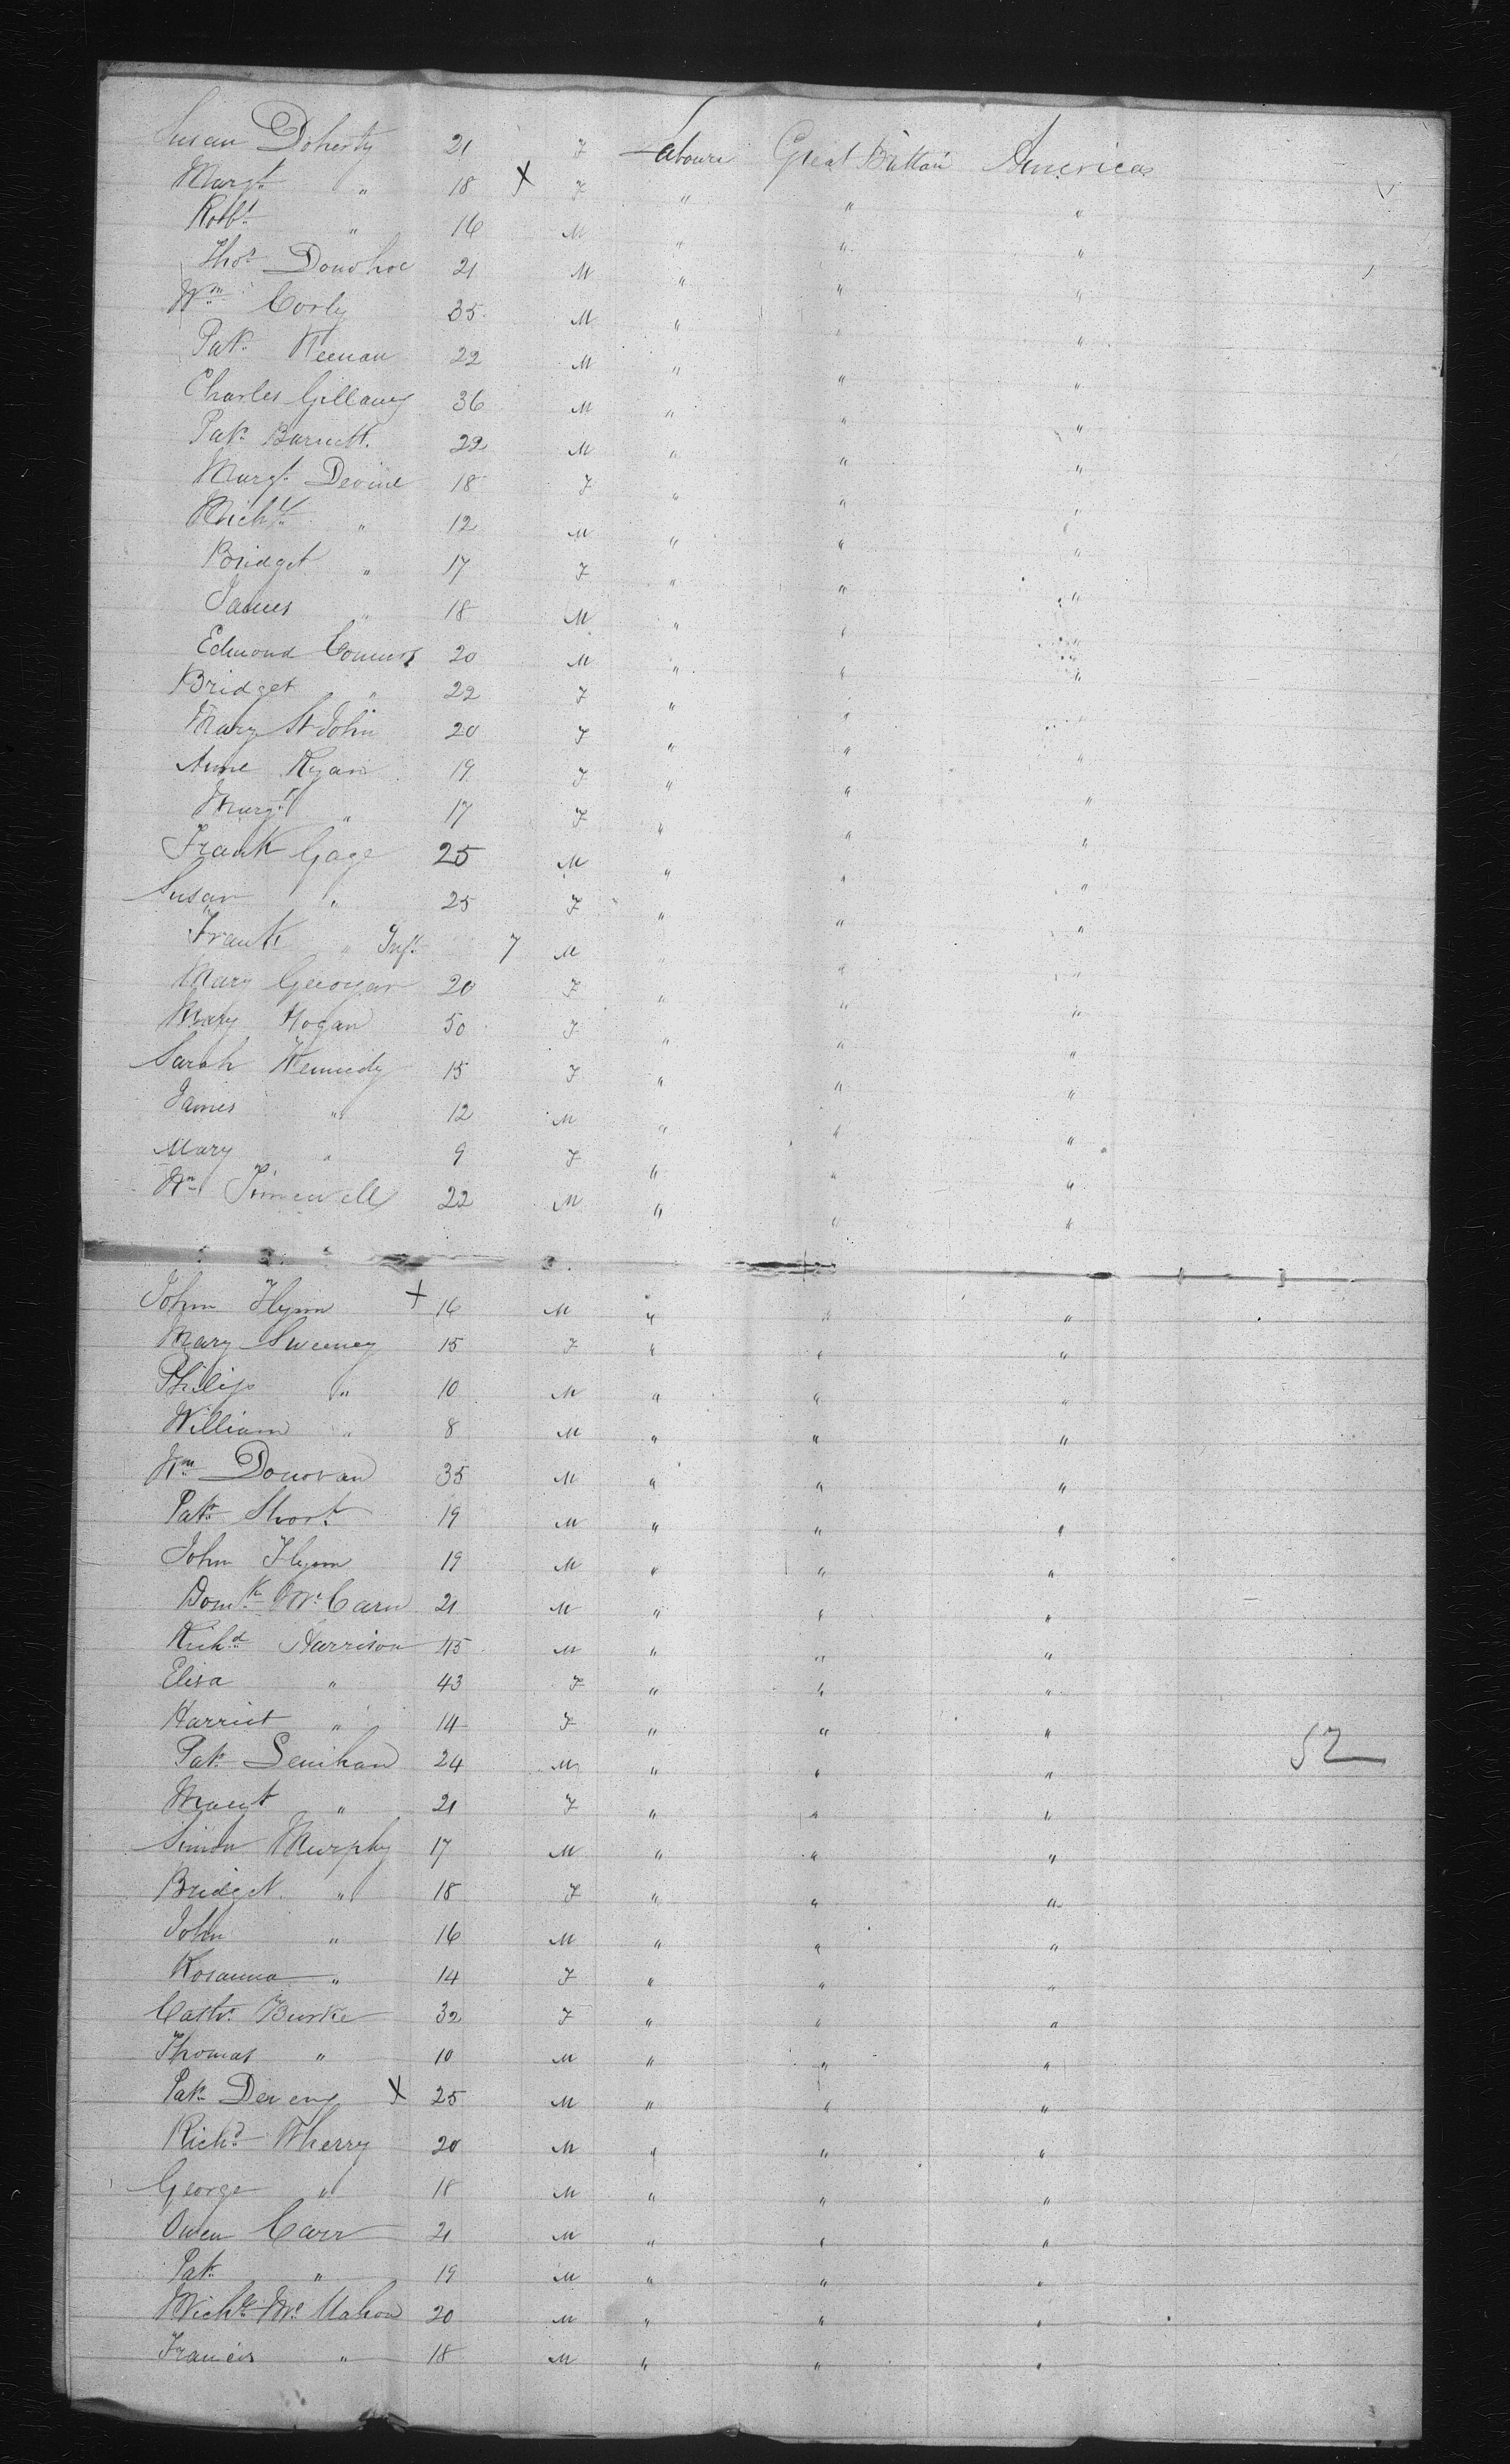 Susan Doherty 21 F Laboure Great Brittain America
Margt " 18 X F " " "
Robt " 16 M " " "
Thos Donohoe 21 M " " "
Wm Corly 35 M " " "
Pat. Keenan 22 M " " "
Charles Gillaney 36 M " " "
Patk Barnett. 22 M " " "
Margt Devine 18 F " " "
Michl " 12 M " " "
Bridget " 17 F " " "
James " 18 M " " "
Edmond Connors 20 M " " "
Bridget " 22 F " " "
Mary St John 20 F " " "
Anne Ryan 19 F " " "
Margt " 17 F " " "
Frank Gage 25 M " " "
Susan " 25 F " " "
Frank " Inft 7 M " " "
Mary 20 F " " "
Mary Hogan 50 F " " "
Sarah Kennedy 15 F " " "
James " 12 M " " "
Mary " 9 F " " "
Wm Timewell 22 M " " "
John Flynn X 16 M " " "
Mary Sweeney 15 F " " "
Philip " 10 M " " "
William " 8 M " " "
Wm Donovan 35 M " " "
Patk Short 19 M " " "
John Flynn 19 M " " "
Domk McCarn 21 M " " "
Richd Harrison 45 M " " "
Eliza " 43 F " " "
Harriet " 14 F " " "
Patk Lenihan 24 M " " " 52
" 21 F " " "
Simon Murphy 17 M " " "
Bridget " 18 F " " "
John " 16 M " " "
Rosanna " 14 F " " "
Cathe Burke 32 F " " "
Thomas " 10 M " " "
Patk Deveny X 25 M " " "
Richd Wherry 20 M " " "
George " 18 M " " "
Owen Carr 21 M " " "
Pat. " 19 M " " "
Michl McMahon 20 M " " "
Francis " 18 M " " "